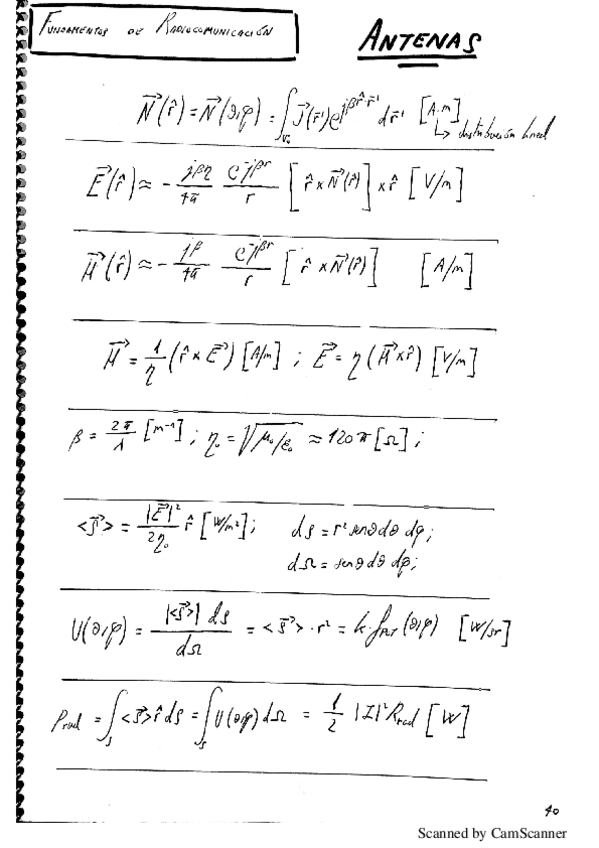 FUNDAMENTOS DE RADIOCOMUNICACIÓN
ANTENAS
N⃗(r̂) = N⃗(θ,φ) = ∫_V₀ J⃗(r̄') e^{jβ r̂·r̄'} dr̄' [A·m]
↳ distribución lineal
E⃗(r̂) ≈ - jβη/4π e^{-jβr}/r [r̂ × N⃗(r̂)] × r̂ [V/m]
H⃗(r̂) ≈ - jβ/4π e^{-jβr}/r [r̂ × N⃗(r̂)] [A/m]
H⃗ = 1/η (r̂ × E⃗) [A/m] ; E⃗ = η (H⃗ × r̂) [V/m]
β = 2π/λ [m⁻¹] ; η₀ = √(μ₀/ε₀) ≈ 120π [Ω] ;
<S⃗> = |E⃗|²/2η₀ r̂ [W/m²] ; ds = r² senθ dθ dφ ;
dΩ = senθ dθ dφ ;
U(θ,φ) = |<S⃗>| ds / dΩ = <S⃗> · r² = k · f_{NOR}(θ,φ) [W/sr]
Prad = ∫_S <S⃗> r̂ ds = ∫_S U(θ,φ) dΩ = 1/2 |I|² Rrad [W]
40
Scanned by CamScanner